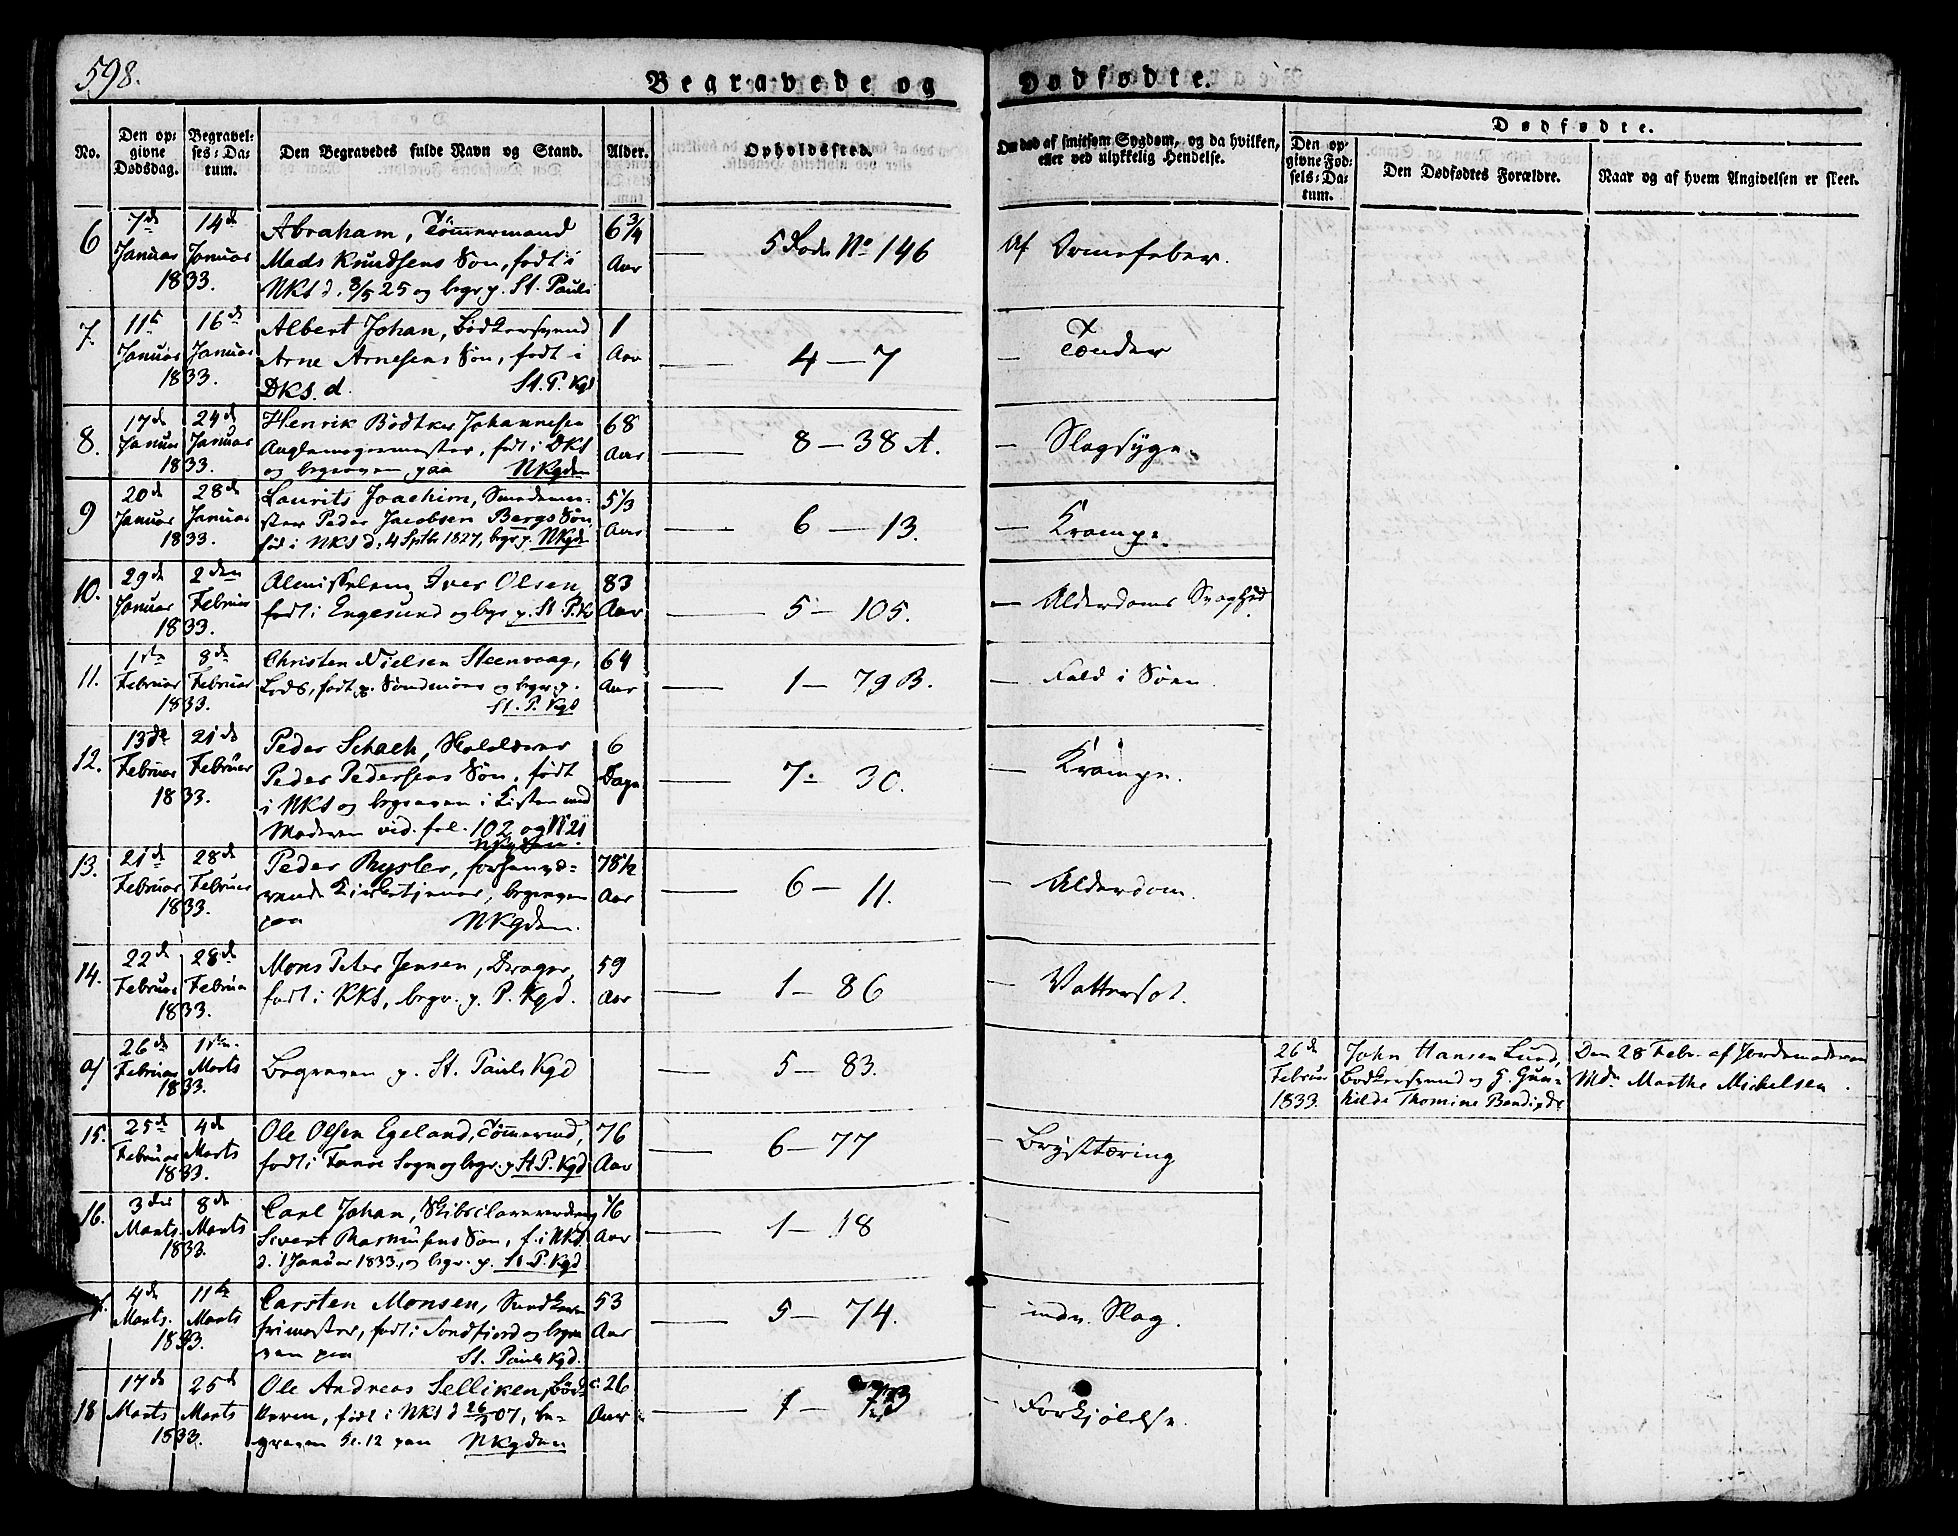 598.
Begravede og
Dødfødte.
No.
Den opgivne Dødsdag.
Begravelses-Datum.
Den Begravedes fulde Navn og Stand.
Alder.
Opholdssted.
Om død af smitsom Sygdom, og da hvilken, eller ved ulykkelig Hendelse.
Dødfødte.
Den opgivne Fødsels-Datum.
Den Dødfødtes Forældre.
Naar og af hvem Angivelsen er skeet.
6
7de Januar 1833.
14de Januar
Abraham, Tömmermand
Mads Knudsens Søn, født i
NKS d. 8/5 25 og begr. p. St. Pauls
6 3/4 Aar
5 Rode No 146
Af Ormefeber.
7.
11te Januar 1833.
16de Januar
Albert Johan, Bødkersvend
Arne Arnesens Søn, født i
DKS. d. St. P. Kgd
1 Aar
4 — 7
— Tænder
8.
17de Januar 1833.
24de Januar
Henrik Bødtker Johannesen
født i DKS
og begraven paa NKgden
68 Aar
8 — 38 A.
— Slagsyge.
9
20de Januar 1833.
28de Januar
Laurits Joachim, Smedeme-
ster Peder Jacobsen Bergs Søn,
fød i NKS d. 4 Septbr 1827, begr. p. NKgden
5 1/3 Aar
6 — 13.
— Krampe.
10.
29de Januar 1833.
2den Februar
Almisselem Iver Olsen,
født i Engesund og begr p. St. P. K
83 Aar
5 — 105.
— Alderdoms Svaghed
11.
1ste Februar 1833.
8de Februar
Christen Nielsen Steenvaag,
Lods, født p. Søndmøer og begr. p.
St. P. Kgd
64 Aar
1 — 79 B.
— Fald i Søen.
12.
13de Februar 1833.
21de Februar
Peder Schach,
Peder Pedersens Søn, født
i NKS og begraven i Kisten med
Moderen vid. fol. 102 og No 21
NKgden.
6 Dage
7 — 30.
— Krampe.
13.
21de Februar 1833.
28de Februar
Peder Rysler, forhenvæ-
rende Kirketjener, begraven
paa NKgden.
78 1/2 Aar
6 — 11.
— Alderdom.
14.
22de Februar 1833.
28de Februar
Mons Peter Jensen, Drager,
født i KKS, begr. p. P. Kgd.
59 Aar
1 — 86
— Vattersot.
a)
26de Februar 1833.
1ste Marts
Begraven p. St. Pauls Kgd
5 — 83.
26de Februar 1833.
John Hansen Lund,
Bødkersvend og H. Gun-
hilde Thomine Bendixdr
Den 28 Febr. af Jordemoderen
Mdm Marthe Michelsen.
15.
25de Februar 1833.
4de Marts
Ole Olsen Egeland, Tömermd,
født i Fanøe Sogn og begr. p St P. Kgd
76 Aar
6 — 77
— Brysttæring
16.
3die Marts. 1833.
8de Marts
Carl Johan,
Sivert Rasmusens Søn, f. i NKS.
d. 1 Januar 1833, og begr. p. St. P. Kgd
1/6 Aar
1 — 18
—
4de Marts. 1833.
11te Marts
Carsten Monsen,
født i Søndfjord og begra
ven paa St. Pauls Kgd.
53 Aar
5 — 74.
— indv. Slag.
18
17de Marts 1833.
25de Marts
Ole Andreas Selliken, Bød-
keren, født i NKS d 26/ 07, be-
graven Se. 12 paa NKgden
26 Aar
1 — 73
— Forkjølelse.